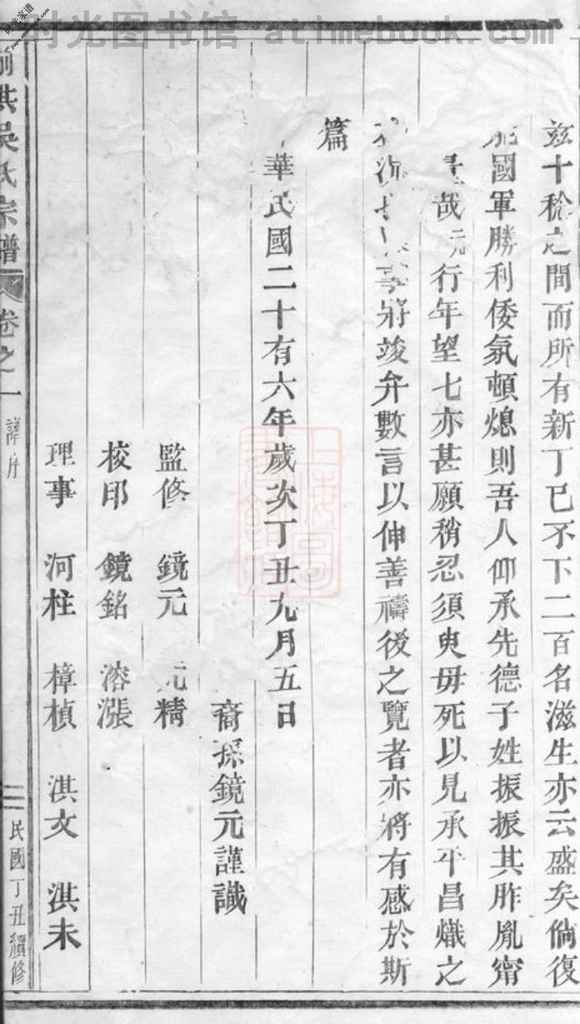 时光图书馆 atimebook.com
茲十稔之間而所有新丁已不下二百名滋生亦云盛矣倘復
國軍勝利倭氛頓熄則吾人仰承先德子姓振振其胙胤甯
量哉元行年望七亦甚願稍忍須臾毋死以見承平昌熾之
事將竣弁數言以伸善禱後之覽者亦將有感於斯
篇
華民國二十有六年歲次丁丑九月五日
裔孫鏡元謹識
監修 鏡元 元精
校印 鏡銘 溶漲
理事 河柱 樟楨 淇文 淇未
洪吳氏宗譜 卷之一 譜序 二 民國丁丑續修